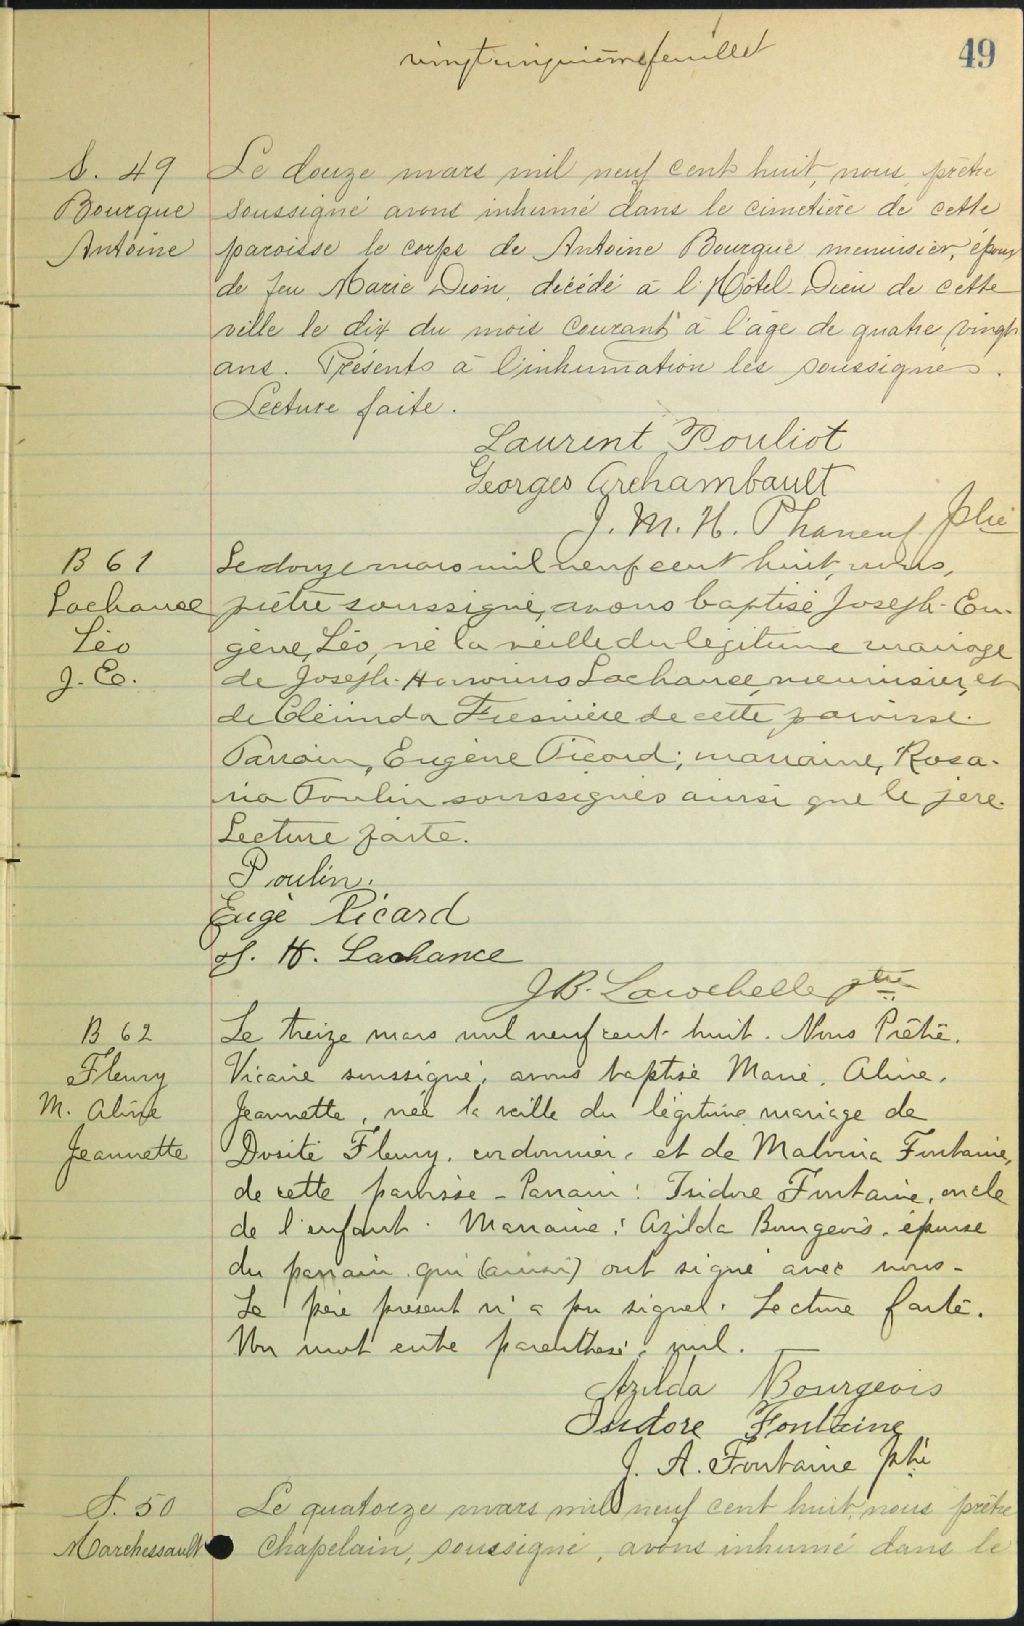 vingt cinquième feuillet
49
S. 49
Bourque
Antoine
Le douze mars mil neuf cent huit, nous, prêtre
soussigné avons inhumé dans le cimetière de cette
paroisse le corps de Antoine Bourque menuisier, époux
de feu Marie Dion, décédé à l'Hôtel-Dieu de cette
ville le dix du mois courant à l'âge de quatre vingt
ans. Présents à l'inhumation les soussignés.
Lecture faite.
Laurent Pouliot
Georges Archambault
J. M. H. Phaneuf ptre
B 61
Lachance
Léo
J. E.
Le douze mars mil neuf cent huit, nous,
prêtre soussigné, avons baptisé Joseph-Eu-
gène, Léo, né la veille du légitime mariage
de Joseph-Honorius Lachance, menuisier, et
de Clérinda Fresnière de cette paroisse.
Parrain, Eugène Picard; marraine, Rosa-
ria Poulin soussignés ainsi que le père.
Lecture faite.
Poulin.
Eugè Picard
J. H. Lachance
J.B. Larochelle ptre
B 62
Fleury
M. Aline
Jeannette
Le treize mars mil neuf cent huit. Nous Prêtre,
Vicaire soussigné, avons baptisé Marie, Aline,
Jeannette, née la veille du légitime mariage de
Dosité Fleury, cordonnier, et de Malvina Fontaine,
de cette paroisse - Parrain: Isidore Fontaine, oncle
de l'enfant. Marraine: Azilda Bourgeois, épouse
du parrain qui (ainsi) ont signé avec nous-
Le père présent n'a pu signer. Lecture faite.
Un mot entre parenthèse, nul.
Azilda Bourgeois
Isidore Fontaine
J. A. Fontaine ptre
S. 50
Marchessault
Le quatorze mars mil neuf cent huit, nous prêtre
Chapelain, soussigné, avons inhumé dans le